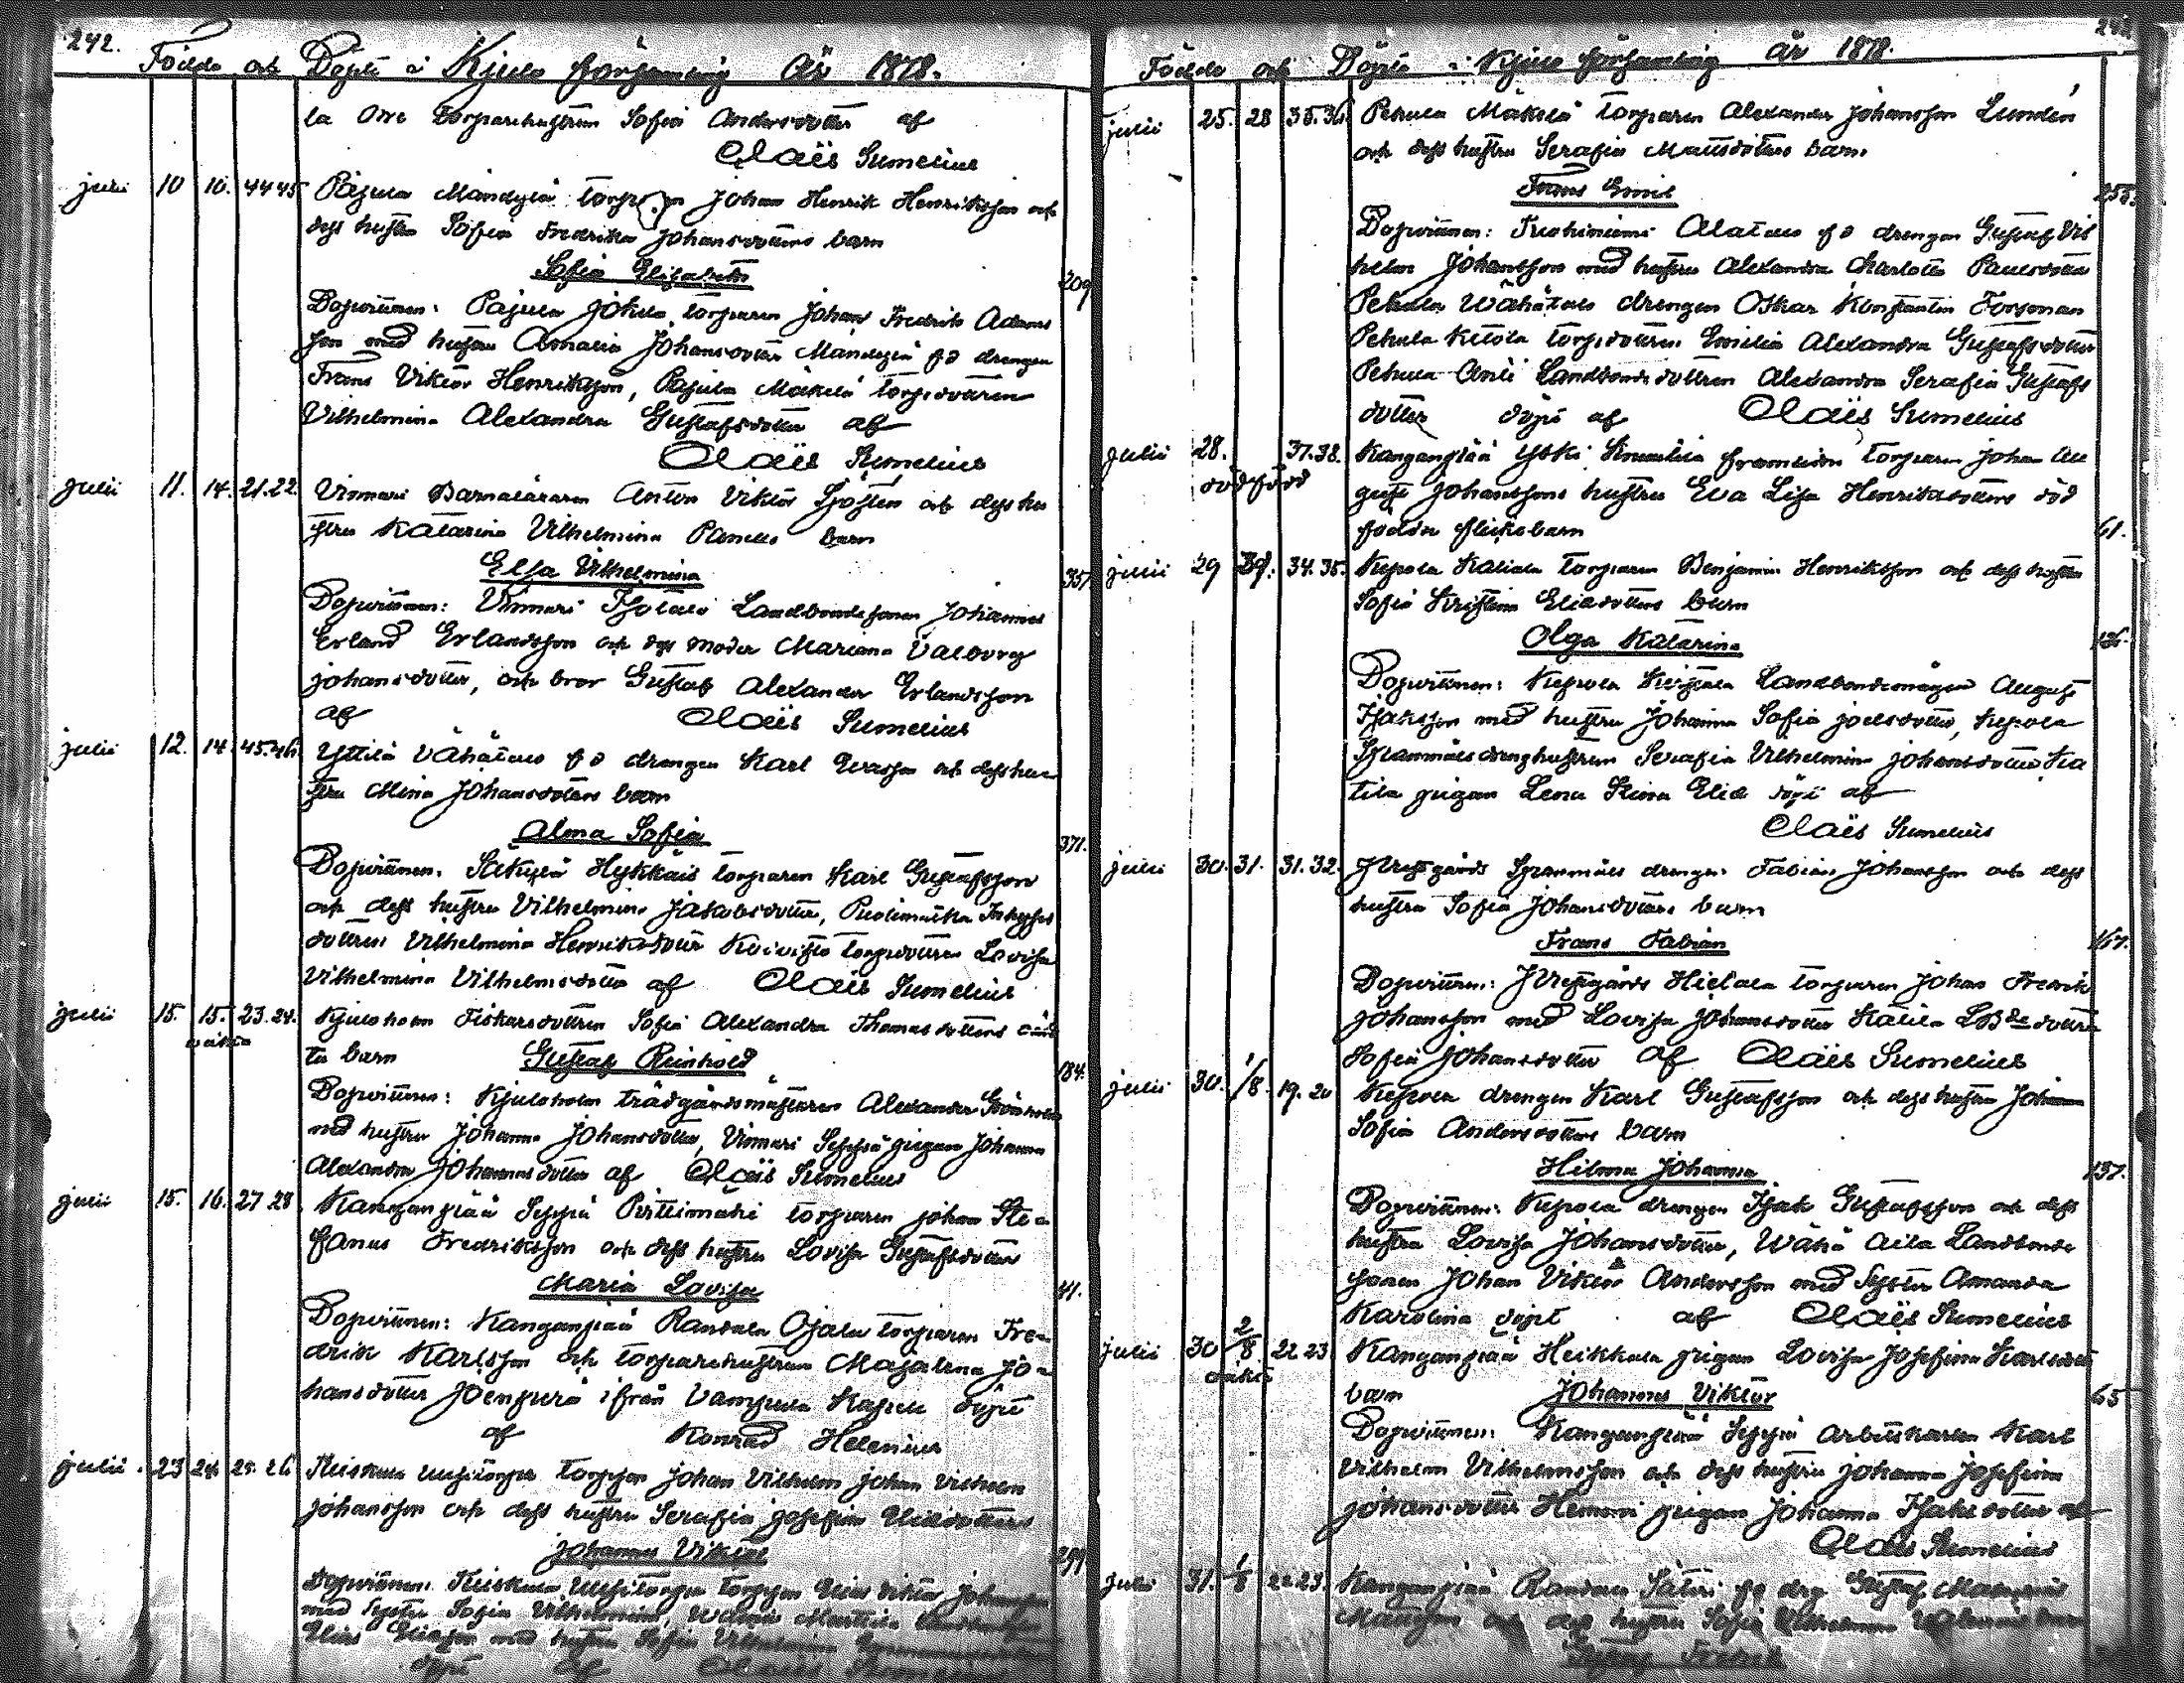 242.
Födde och Döpte i Kjulo församling år 1878.
la Orre torparehustrun Sofia Andersdotter af
Claës Sumelius
juli 10 10. 44 45 Pajula Mändylä Johan Henrik Henriksson och
dess hustru Sofia Fredrika Johansdotters barn
Sofia Elisabeth 209
Dopvittnen: Pajula Jokela torparen Johan Fredrik Adams
son med hustru Amalia Johansdotter Mändylä fd drengen
Frans Viktor Henriksson, Pajula Mäkelä torp.dottren
Vilhelmina Alexandra Gustafsdotter af
Claës Sumelius
julii 11. 14. 21.22. Vinnari Barnaläraren Anton Viktor Sjösten och dess hu
stru Katarina Vilhelmina barn
Elsa Vilhelmina 351
Dopvittnen: Vinnari Isotalo Landbondesonen Johannes
Erland Erlandsson och dess moder Mariana Valborg
Johansdotter, och bror Gustaf Alexander Erlandsson
af Claës Sumelius
julii 12. 14 45.46. Yttilä Vähätalo fd drengen Karl och dess hu
stru Mina Johansdotters barn
Alma Sofia 371.
Dopvittnen: Säkylä Hykkäis torparen Karl Gustafsson
och dess hustru Vilhelmina Jakobsdotter, Inhyses
dottren Vilhelmina Henriksdotter Koivisto torp.dottren Lovisa
Vilhelmina Vilhelmsdotter af Claës Sumelius
julii 15. 15. 23.24. Kjuloholm Fiskarsdottren Sofia Alexandra Thomasdotters oäck
oäkta
ta barn Gustaf Reinhold 184.
Dopvittnen: Kjuloholm trädgårdsmästaren Alexander
med hustru Johanna Johansdotter, Vinnari Seppä pigan Johanna
Alexandra Johannesdotter af Claës Sumelius
julii 15. 16. 27 28 Kanganpää Seppä Pirttimäki torparen Johan Ste-
fanus Fredriksson och dess hustru Lovisa Gustafsdotter
Maria Lovisa 41.
Dopvittnen: Kanganpää Randala Ojala torparen Fre-
drik Karlsson och torparehustrun Majalena Jo-
hansdotter Joenperä ifrån Vampula Kapell döpt
af Konrad Helenius
julii 23 25. 26 torpson Johan Vilhelm Johan Vilhelm
Johansson och dess hustru Serafia Josefina Eliaedotters
Johannes Viktor 299
Dopvittnen: torpson Elias Viktor Johansson
med syster Sofia Vilhelmina,
Elias Eliasson med hustru Sofia Vilhelmina
döpt af Claës Sumelius
Födde och Döpte i Kjulo församling år 1878.
julii 25. 28 35.36. Pehula Mäkelä torparen Alexander Johansson Lundén
och dess hustru Serafia Mattsdotters barn
Frans Emil 255.
Dopvittnen: Alatalo fd drengen Gustaf Vil
helm Johansson med hustru Alexandra Charlotta Paulsdotter
Pehula Wähätalo drengen Oskar Konstantin Forsman
Pehula Ketola torp.dottren Emilia Alexandra Gustafsdotter
Pehula Anti Landbondedottren Alexandra Serafia Gustafs
dotter döpt af Claës Sumelius
julii 28. 37.38. Kanganpää Yski framlidne torparen Johan Au
dödfödd
gust Johanssons hustru Eva Lisa Henriksdotters död
födda flickobarn 61.
julii 29 34.35. Kepola Kaliala torparen Benjamin Henriksson och dess hustru
Sofia Kristina Eliaedotters barn
Olga Katarina 126.
Dopvittnen: Kepola Landbondemågen August
Isaksson med hustru Johanna Sofia Joelsdotter, Kepola
Spannmålsdrenghustrun Serafia Vilhelmina Johansdotter
pigan Lena Stina Elia döpt af
Claës Sumelius
julii 30. 31. 31.32. Prestgårds Spannmåls drengen Fabian Johansson och dess
hustru Sofia Johansdotters barn
Frans Fabian 167.
Dopvittnen: Prestgårds Hielala torparen Johan Fredrik
Johansson med Lovisa Johansdotter Kätilä LBde dottren
Sofia Johansdotter af Claës Sumelius
julii 30. 1/8. 19. 20 Kepola drengen Karl Gustafsson och dess hustru Johanna
Sofia Andersdotters barn
Hilma Johanna 137.
Dopvittnen: Kepola drengen Isak Gustafsson och dess
hustru Lovisa Johansdotter, Wähä Aila Landbonde
sonen Johan Viktor Andersson med Syster Amanda
Karolina döpt af Claës Sumelius
julii 30 2/8 22 23 Kanganpää Heikkala pigan Lovisa Josefina Karlsdotters
oäkta
barn Johannes Viktor 65
Dopvittnen: Kanganpää Seppä Arbetskarlen Karl
Vilhelm Vilhelmsson och dess hustru Johanna Josefina
Johansdotter pigan Johanna Isaksdotter af
Claës Sumelius
julii 31. 1/8 22.23. Kanganpää Randala Säteri fd drg Gustaf
och dess hustru Sofia Vilhelmina